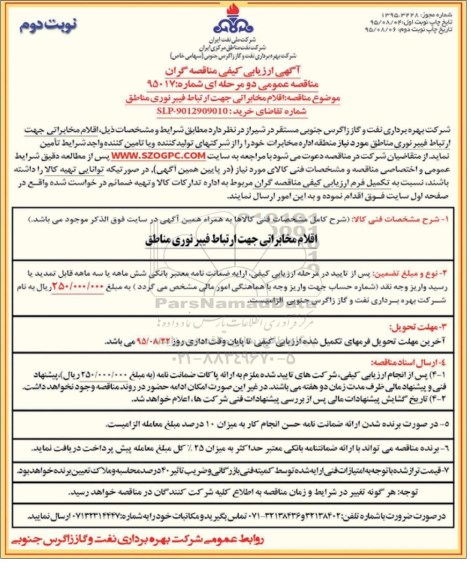 نوبت دوم
شماره مجوز: ۱۳۹۵،۳۲۲۸
تاریخ چاپ نوبت اول: ۹۵/۰۸/۰۴
تاریخ چاپ نوبت دوم: ۹۵/۰۸/۰۶
شرکت ملی نفت ایران
شرکت نفت مناطق مرکزی ایران
شرکت بهره برداری نفت و گاز زاگرس جنوبی (سهامی خاص)
آگهی ارزیابی کیفی مناقصه گران
مناقصه عمومی دو مرحله ای شماره: ۹۵۰۱۷
موضوع مناقصه: اقلام مخابراتی جهت ارتباط فیبر نوری مناطق
شماره تقاضای خرید: SLP-9012909010
شرکت بهره برداری نفت و گاز زاگرس جنوبی مستقر در شیراز در نظر دارد مطابق شرایط و مشخصات ذیل، اقلام مخابراتی جهت
ارتباط فیبر نوری مناطق مورد نیاز منطقه اداره مخابرات خود را از شرکتهای تولید کننده و یا تامین کننده واجد شرایط تأمین
نماید. از متقاضیان شرکت در مناقصه دعوت می شود با مراجعه به سایت WWW.SZOGPC.COM پس از مطالعه دقیق شرایط
عمومی و اختصاصی مناقصه و مشخصات فنی کالای مورد نیاز (در پایین همین آگهی)، در صورتیکه توانایی تهیه کالا را داشته
باشند، نسبت به تکمیل فرم ارزیابی کیفی مناقصه گران مربوط به اداره تدارکات کالا و تهیه ضمائم در خواست شده واقع در
صفحه اول سایت فوق اقدام نموده و به این امور ارسال نمایند.
۱- شرح مشخصات فنی کالا: (شرح کامل مشخصات فنی کالاها به همراه همین آگهی در سایت فوق الذکر موجود می باشد.)
اقلام مخابراتی جهت ارتباط فیبر نوری مناطق
۲- نوع و مبلغ تضمین: پس از تایید در مرحله ارزیابی کیفی، ارایه ضمانت نامه معتبر بانکی شش ماهه یا سه ماهه قابل تمدید یا
رسید واریز وجه نقد (شماره حساب جهت واریز وجه با هماهنگی امور مالی مشخص می گردد) به مبلغ ۲۵۰/۰۰۰/۰۰۰ ریال به نام
شرکت بهره برداری نفت و گاز زاگرس جنوبی الزامیست.
ParsNamadData
۰۲۱-۸۸۳۴۹۶۷۰-۵
۳- مهلت تحویل:
آخرین مهلت تحویل فرمهای تکمیل شده ارزیابی کیفی تا پایان وقت اداری روز ۹۵/۰۸/۲۲ می باشد.
۴- ارسال اسناد مناقصه:
۴-۱) پس از انجام ارزیابی کیفی، شرکت های تایید شده ملزم به ارائه پاکات ضمانت نامه (به مبلغ ۲۵۰/۰۰۰/۰۰۰ ریال)، پیشنهاد
فنی و پیشنهاد مالی ظرف مدت زمان دو هفته می باشند. در غیر این صورت امکان ادامه حضور در روند مناقصه وجود نخواهد داشت.
۴-۲) تاریخ گشایش پیشنهادات مالی پس از بررسی پیشنهادات فنی شرکت ها، اعلام خواهد شد.
۵- در صورت برنده شدن ارائه ضمانت نامه حسن انجام کار به میزان ۱۰ درصد مبلغ معامله الزامیست.
۶- برنده مناقصه می تواند با ارائه ضمانتنامه بانکی معتبر حداکثر به میزان ۲۵٪ کل مبلغ معامله پیش پرداخت دریافت نماید.
۷- قیمت تراز شده با توجه به امتیازات فنی ارایه شده توسط کمیته فنی بازرگانی و ضریب تاثیر ۴۰ درصد محاسبه و ملاک تعیین برنده خواهد بود.
توجه: هر گونه تغییر در شرایط و زمان مناقصه به اطلاع کلیه شرکت کنندگان در مناقصه خواهد رسید.
در صورت ضرورت با شماره تلفن: ۳۲۱۳۸۴۰۲ و ۳۲۱۳۸۴۳۶-۰۷۱ تماس بگیرید و مکاتبات خود را به شماره: ۰۷۱۳۲۳۱۴۴۴۷ ارسال نمایید.
روابط عمومی شرکت بهره برداری نفت و گاز زاگرس جنوبی